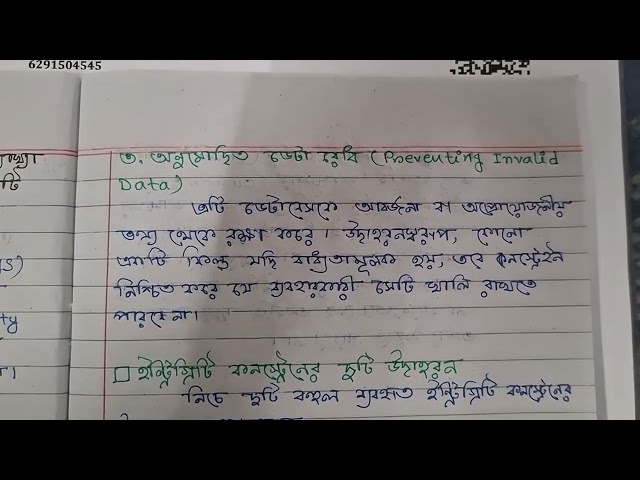 6291504545
৩. অনুমোদিত ডেটা রোধ (Preventing Invalid
Data)
এটি ডেটাবেসকে আবর্জনা বা অপ্রয়োজনীয়
তথ্য থেকে রক্ষা করে। উদাহরনস্বরূপ, কোনো
একটি ফিল্ড যদি বাধ্যতামূলক হয়, তবে কনস্ট্রেইন
নিশ্চিত করে যে ব্যবহারকারী সেটি খালি রাখতে
পারবে না।
□ ইন্টিগ্রিটি কনস্ট্রেনের দুটি উদাহরন
নিচে দুটি বহুল ব্যবহৃত ইন্টিগ্রিটি কনস্ট্রেনের
টি
S)
ty